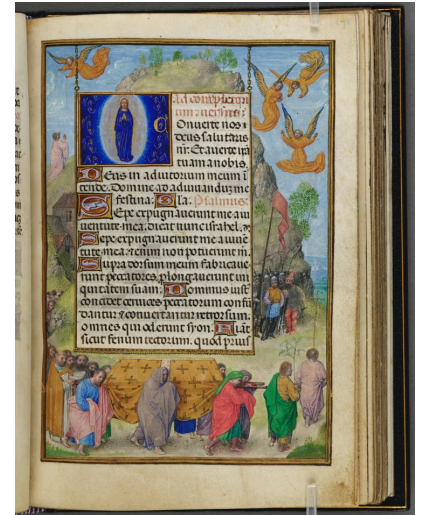 Ad completori
um versus.
Onuerte nos
deus salutaris
nr̄. Et auerte irā
tuam a nobis.
Deus in adiutorium meum ī
tende. Domine ad adiuuandū me
festina. Gla. Psalmus.
Sepe expugnauerunt me a iu
uentute mea, dicat nunc israhel.
Sepe expugnauerunt me a iuuē
tute mea, etenim non potuerunt m.
Supra dorsum meum fabricaue
runt peccatores, plongauerunt in
iquitatem suam. Dominus iust
concidet ceruices peccatorum confū
dantur & conuertantur retrorsum
omnes qui oderunt syon. Fiāt
sicut fenum tectorum, quod prius